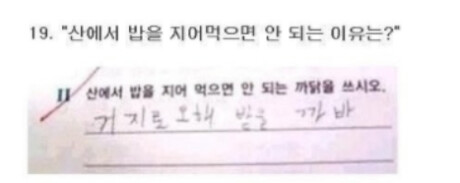 19. "산에서 밥을 지어먹으면 안 되는 이유는?"
11 산에서 밥을 지어 먹으면 안 되는 까닭을 쓰시오.
거지로 오해 받을 까 바